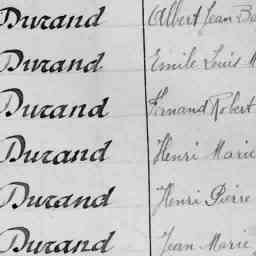 Durand Albert Jean Ba
Durand Emile Louis M
Durand Fernand Robert
Durand Henri Marie
Durand Henri Pierre
Durand Jean Marie